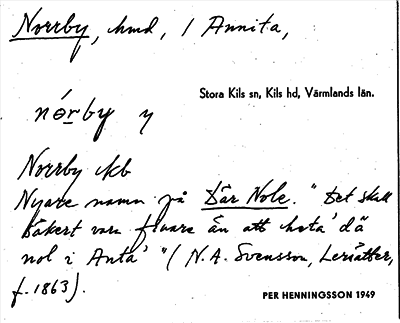 Norrby, hmd, i Annita,
Stora Kils sn, Kils hd, Värmlands län.
nórby y
Norrby ekb
Nyare namn på Där Nole. "Det skall
säkert vara finare än att heta 'dä
nol i Anta' " (N.A. Svensson, Lersätter,
f. 1863).
PER HENNINGSSON 1949